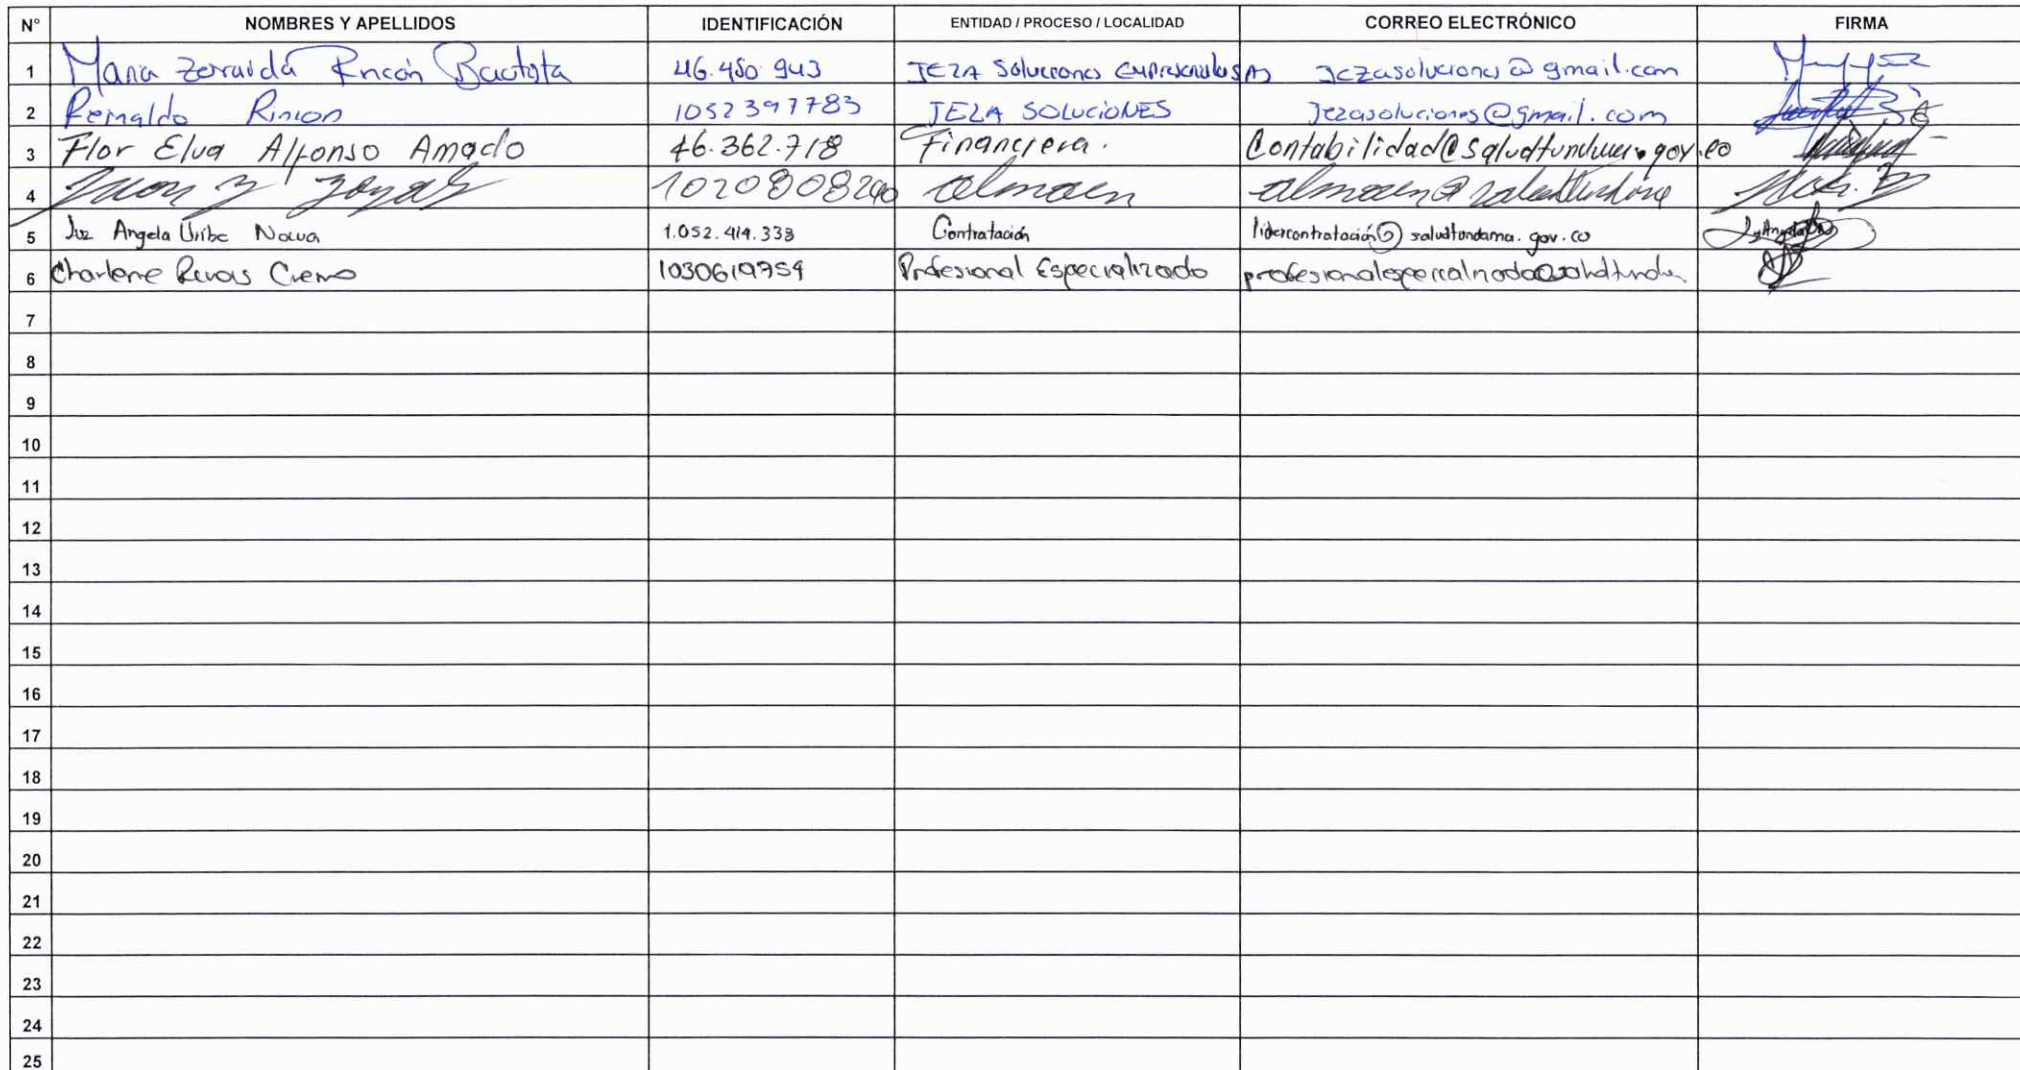 N° NOMBRES Y APELLIDOS IDENTIFICACIÓN ENTIDAD / PROCESO / LOCALIDAD CORREO ELECTRÓNICO FIRMA
1 Maria Zorraida Rincón Bautista 46.450.943 JEZA Soluciones Empresariales SAS Jezasoluciones@gmail.com
2 Reinaldo Rincon 1052397783 JEZA SOLUCIONES Jezasoluciones@gmail.com
3 Flor Elva Alfonso Amado 46.362.718 Financiera. Contabilidad@saludtundama.gov.co
4 1020808240 almacen almacen@saludtundama
5 Luz Angela Uribe Novoa 1.052.414.333 Contratación lidercontratación@saludtundama.gov.co
6 Charlene Rivas 1030619759 Profesional Especializado profesionalespecializado@saludtundama
7
8
9
10
11
12
13
14
15
16
17
18
19
20
21
22
23
24
25